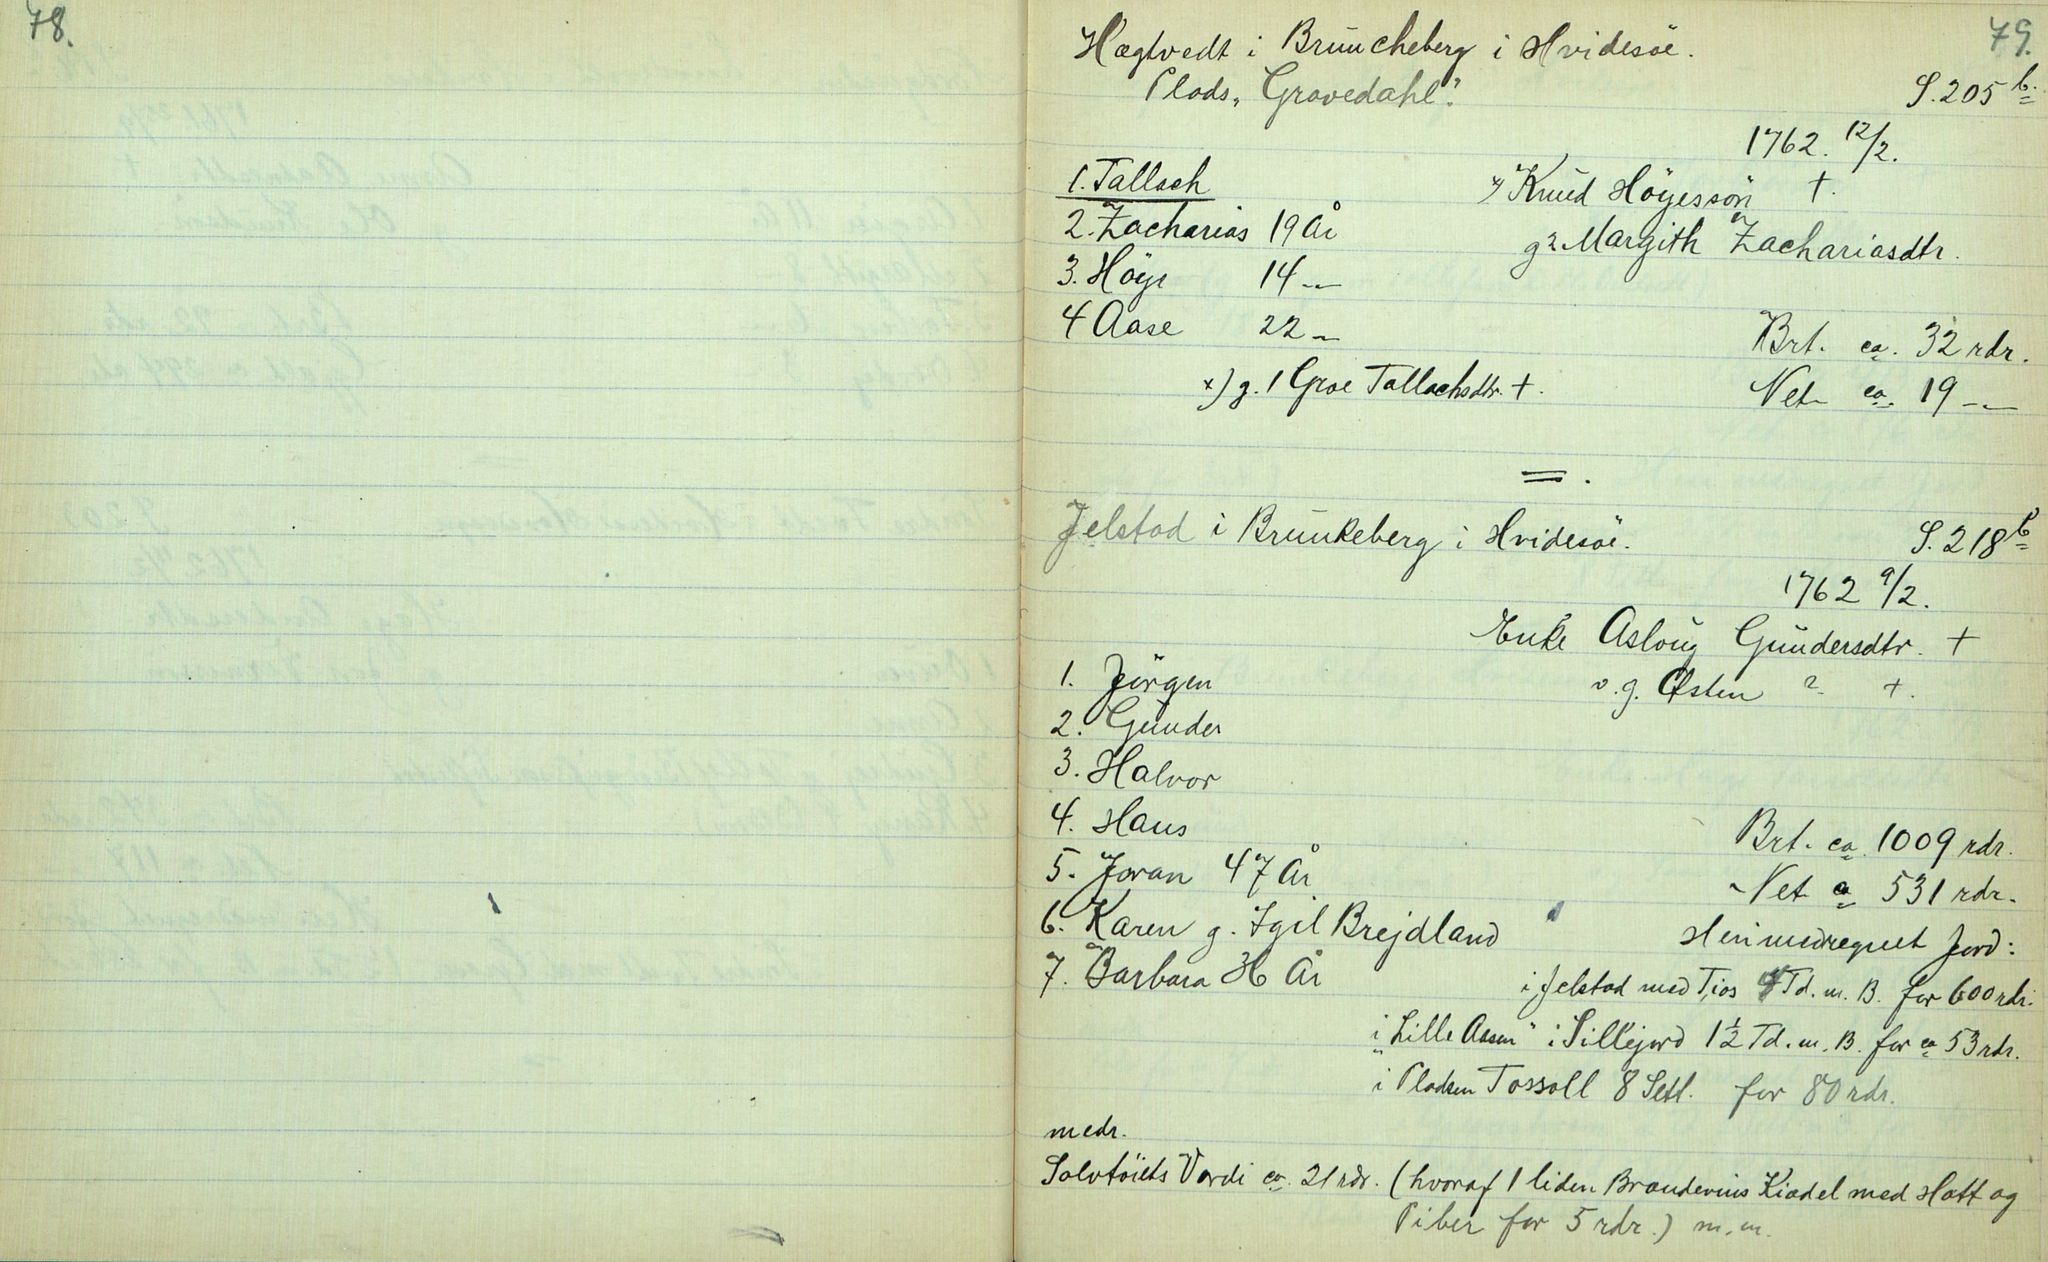 78.
79.
Hægtvedt i Bruncheberg i Hvidesöe.
Plads „Gravedahl".
S. 205 b.
1762. 12/2.
1. Tallach
x) Knud Höyessön +.
2. Zacharias 19 År
g2 Margith Zachariasdtr.
3. Höye 14 —
4 Aase 22 —
Brt. ca. 32 rdr.
x) g. 1 Groe Tallachsdtr. +.
Net ca. 19 —
=.
Jelstad i Brunkeberg i Hvidesöe.
S. 218 b
1762 9/2.
Enke Asloug Gundersdtr. +
1. Jörgen
v. g. Østen ? +.
2. Gunder
3. Halvor
4. Hans
Brt. ca. 1009 rdr.
5. Joran 47 År
Net ca 531 rdr.
6. Karen g. Egil Brejdland
Heri medregnet Jord:
7. Barbara 36 År
i Jelstad med Tios 4 Td. m. B. for 600 rdr.
i „Lille Aasen" i Sillejord 1½ Td. m. B. for ca 53 rdr.
i Pladsen Tossoll 8 Setl. for 80 rdr.
medr.
Solvtöiets Værdi ca. 21 rdr. (hvoraf 1 liden Brændevins Kiædel med Hatt og
Piber for 5 rdr.) m.m.